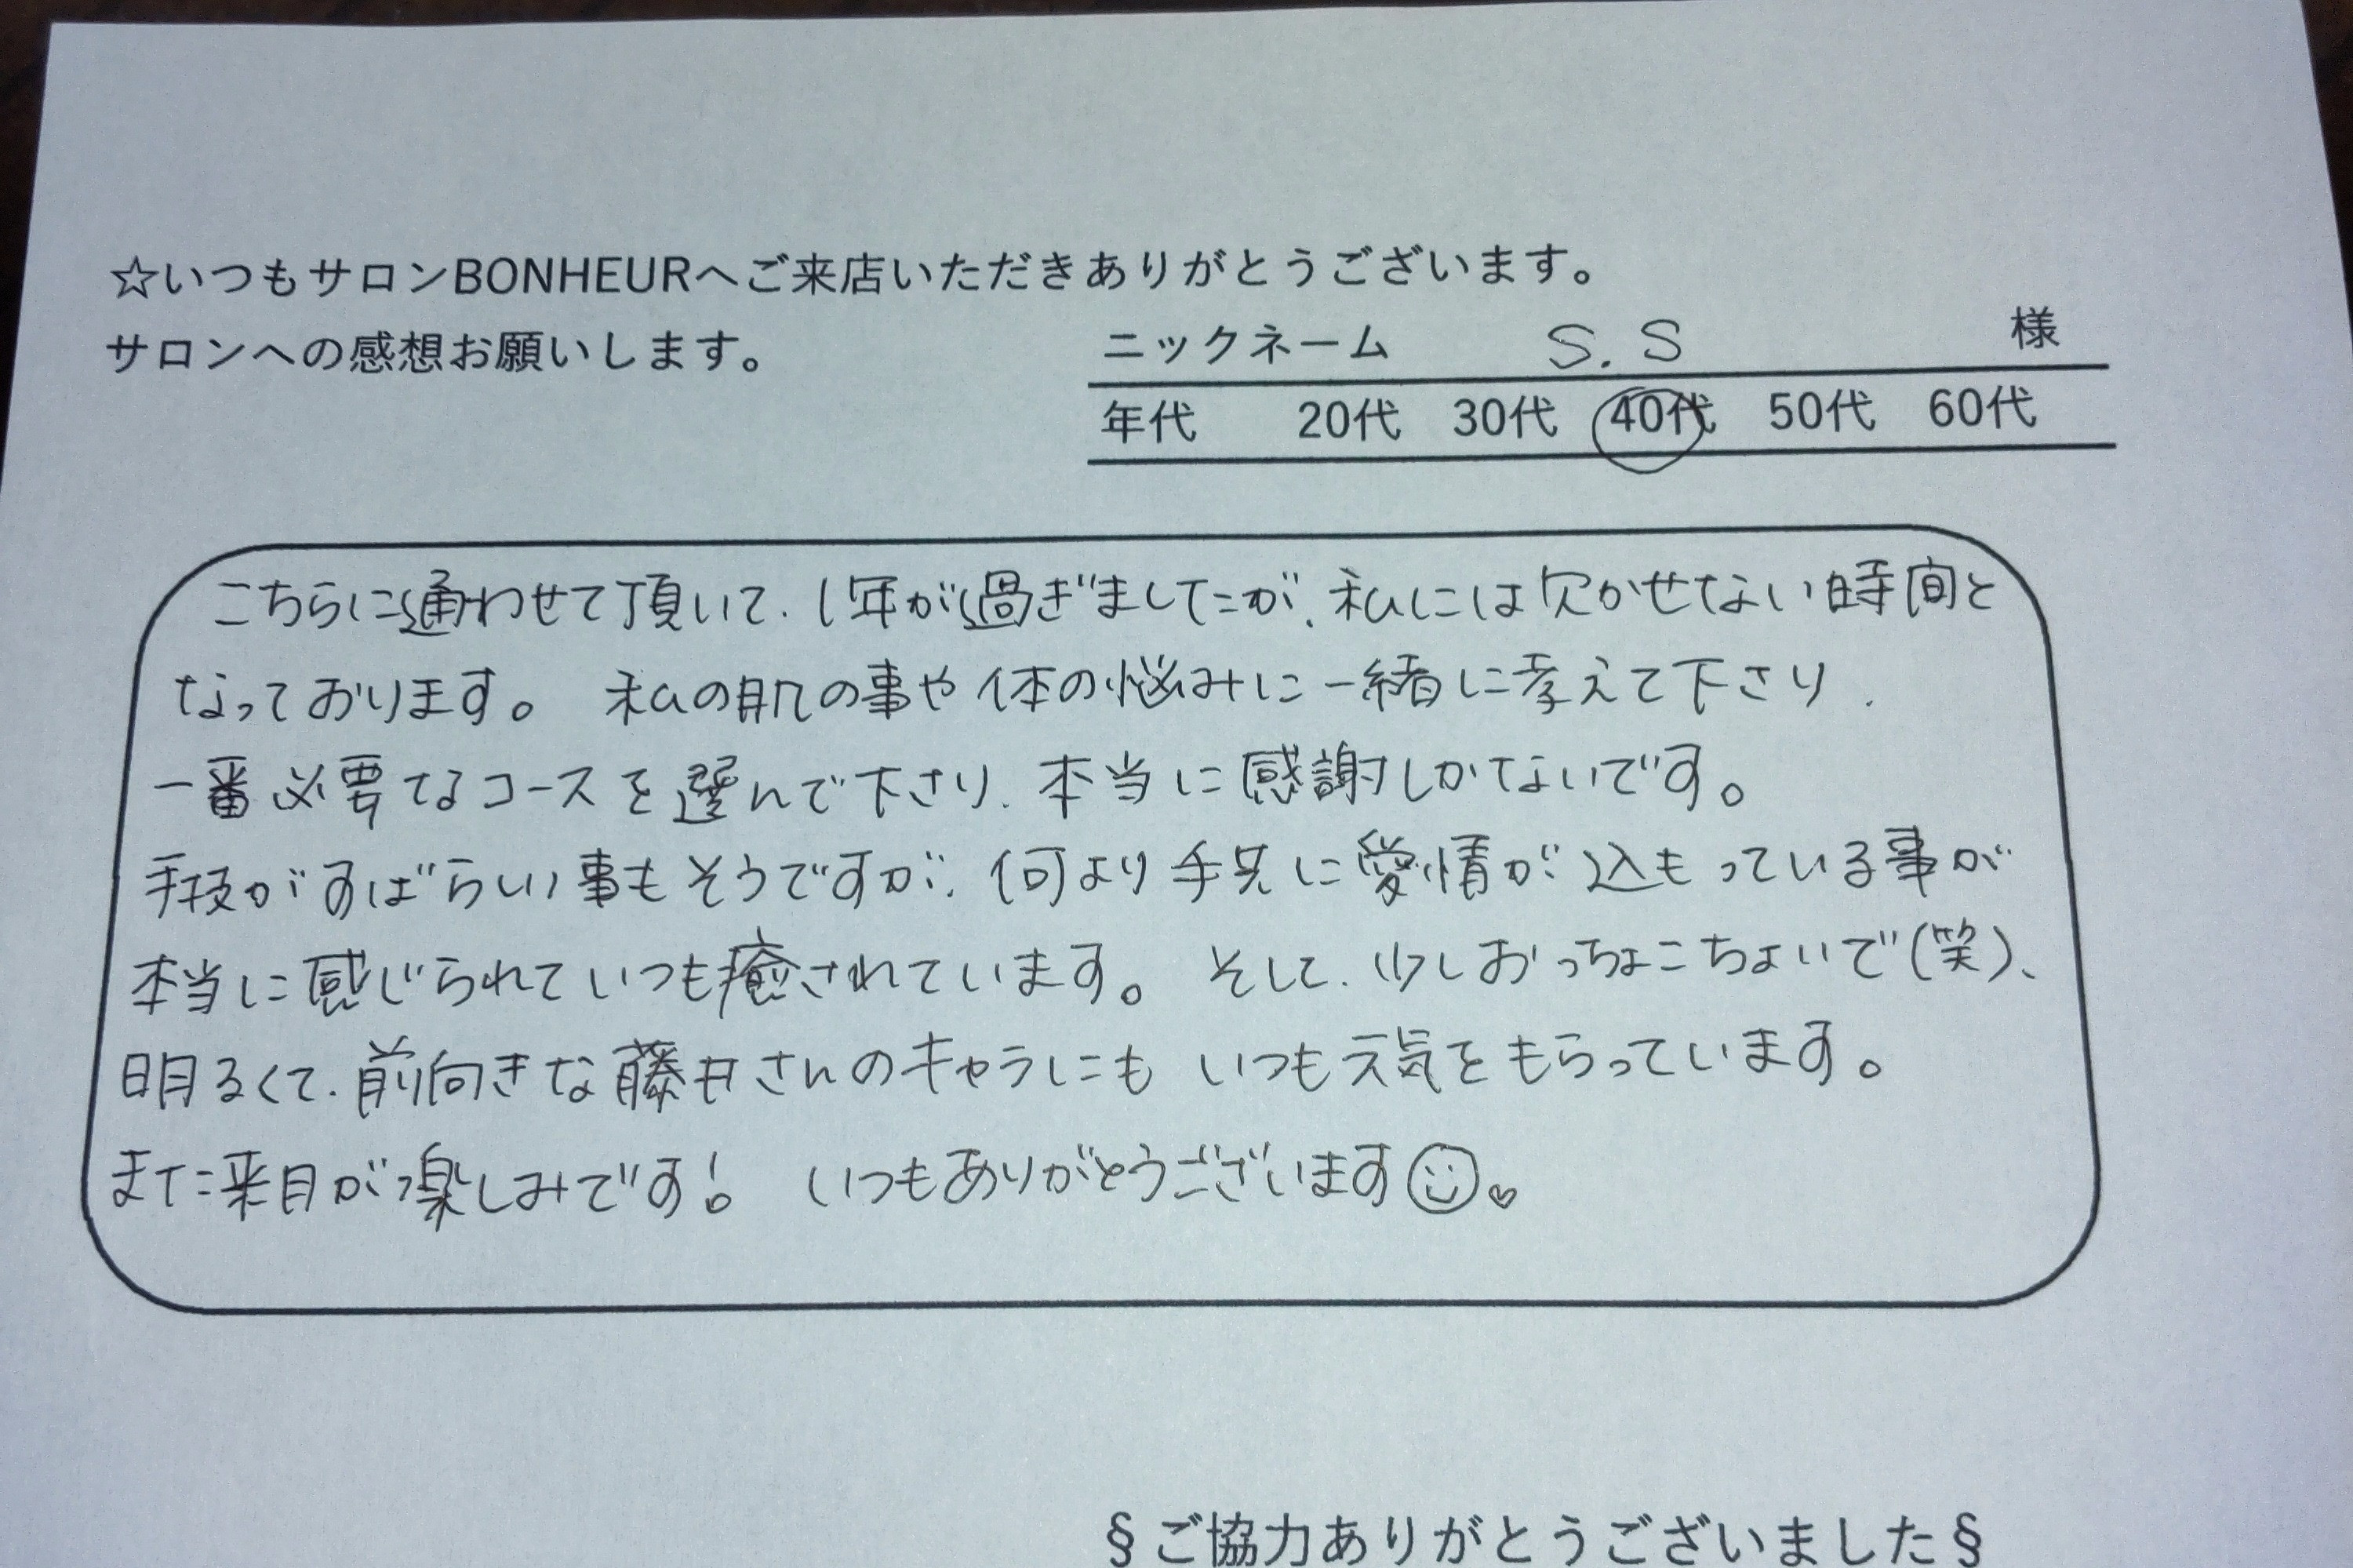 ☆いつもサロンBONHEURへご来店いただきありがとうございます。
サロンへの感想お願いします。
ニックネーム S.S 様
年代 20代 30代 40代 50代 60代
こちらに通わせて頂いて、1年が過ぎましたが、私には欠かせない時間と
なっております。 私の肌の事や体の悩みに一緒に考えて下さり、
一番必要なコースを選んで下さり、本当に感謝しかないです。
手技がすばらしい事もそうですが、何より手先に愛情が込もっている事が
本当に感じられていつも癒されています。 そして、少しおっちょこちょいで(笑)、
明るくて、前向きな藤井さんのキャラにもいつも元気をもらっています。
また来月が楽しみです! いつもありがとうございます☺♡
§ご協力ありがとうございました§